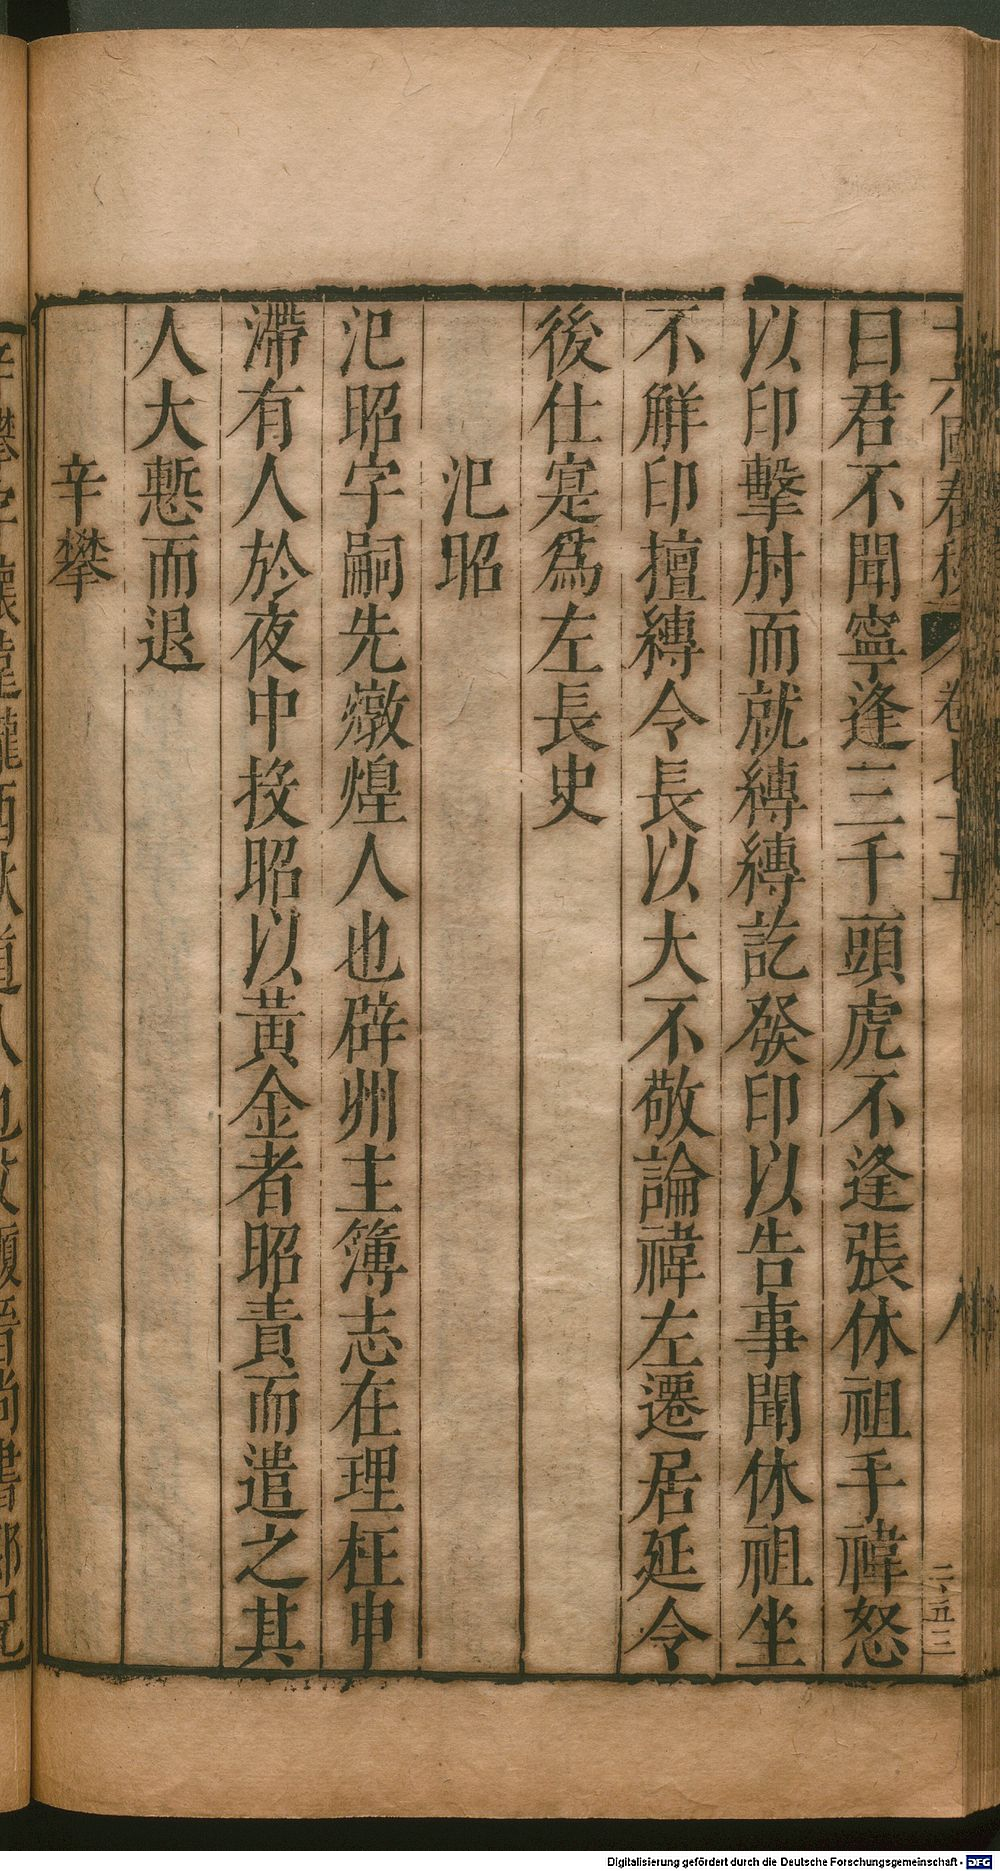 十六國春秋 卷七十五 八 二.五三
曰君不聞寧逢三千頭虎不逢張休祖手禕怒
以印擊肘而就縛縛訖發印以告事聞休祖坐
不解印擅縛令長以大不敬論禕左遷居延令
後仕寔為左長史
氾昭
氾昭字嗣先燉煌人也辟州主簿志在理枉申
滯有人於夜中投昭以黃金者昭責而遣之其
人大慙而退
辛攀
辛攀字懷遠隴西狄道人也父顒晉尚書郎兄
Digitalisierung gefördert durch die Deutsche Forschungsgemeinschaft - DFG